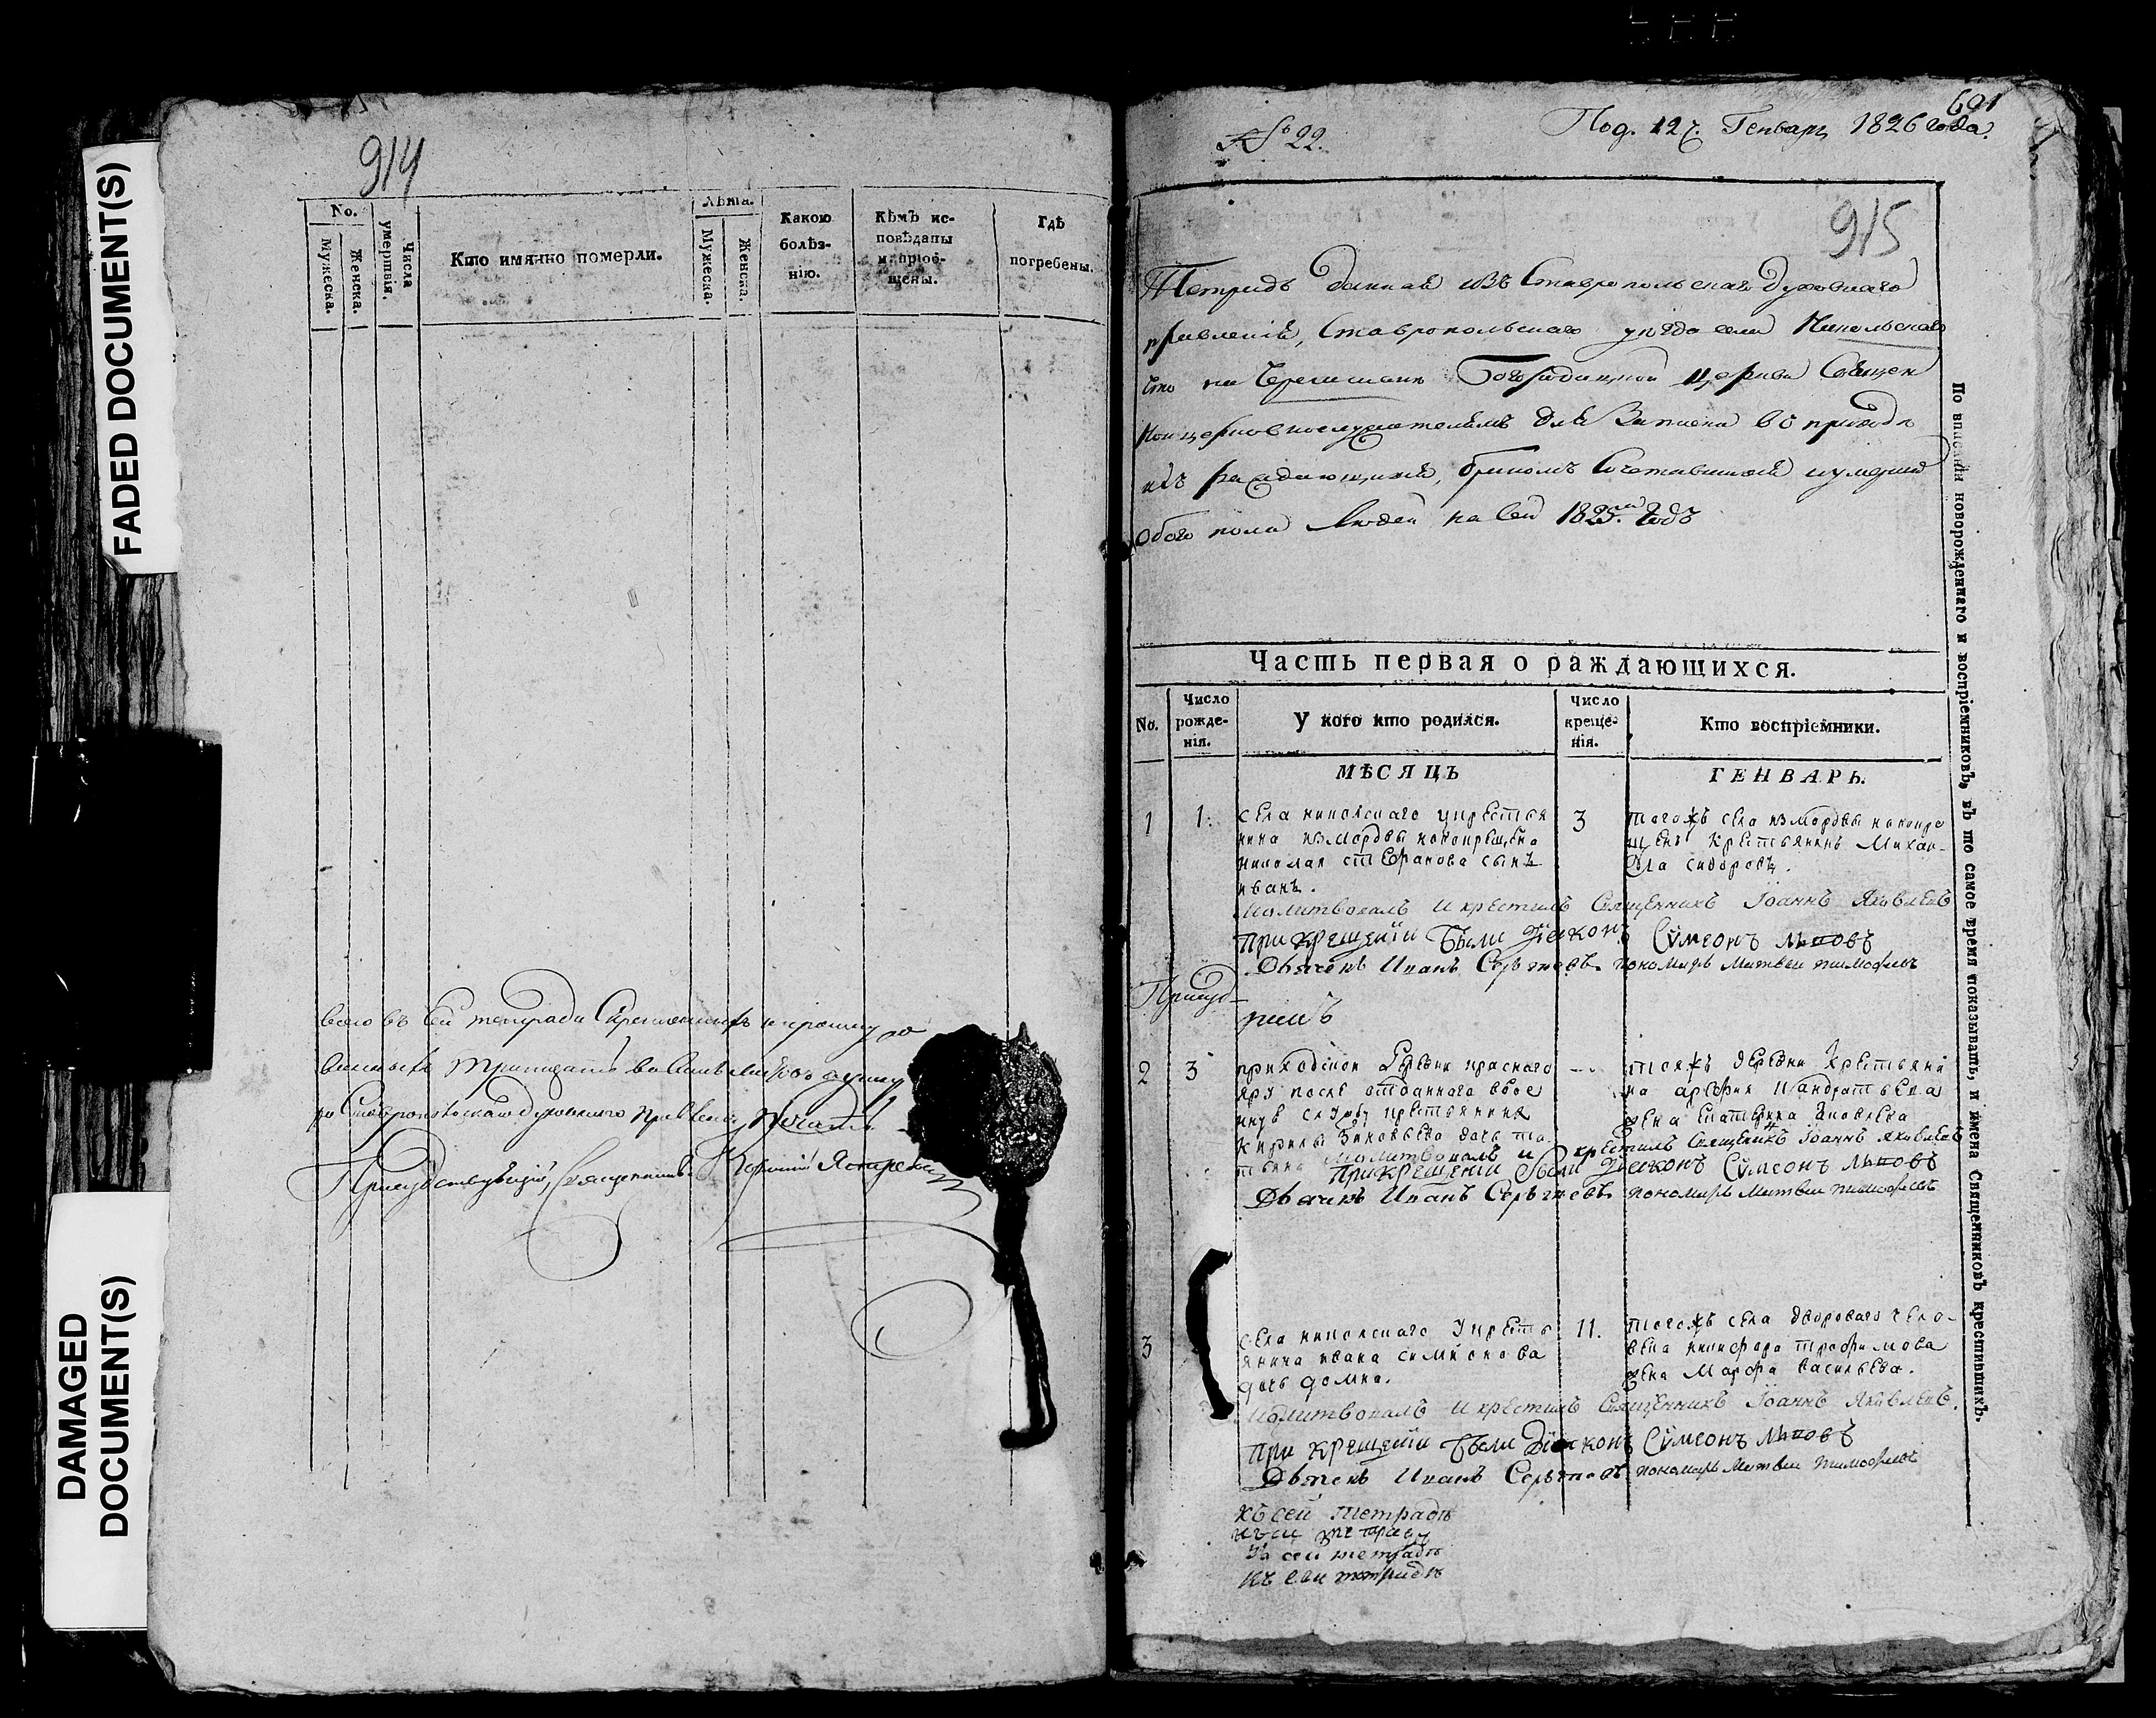 FADED DOCUMENT(S)
DAMAGED
DOCUMENT(S)
914
No.
Мужеска.
Женска.
Числа
умертвія.
Кто имянно померли.
Лѣта.
Мужеска.
Женска.
Какою
болѣз-
нію.
Кѣмъ ис-
повѣданы
и пріоб-
щены.
Гдѣ
погребены.
всего въ сей тетради
Тритцать
Ставропольскаго духовнаго Правленія печать
Присудствующій, Священникъ
601
№ 22.
Под. 12 Генваря 1826 года.
915
Тетрадь данная изъ Ставропольскаго духовнаго
правленія, Ставропольскаго уѣзда села Никольскаго
что на Черемшанѣ Богородицкой церкви Священ
но церковнослужителямъ для записки въ приходѣ
ихъ раждающихся, бракомъ сочетавшихся и умерших
обоего пола людей на сей 1825й годъ
Часть первая о раждающихся.
No.
Число
рожде-
нія.
У кого кто родился.
Число
креще-
нія.
Кто воспріемники.
МѢСЯЦЪ
ГЕНВАРЬ.
1
1.
села николскаго укрестья
нина измордвы новокрещена
николая стефанова сынъ
иванъ.
3
тогожъ села измордвы новокре
щенъ крестьянинъ Михаи-
ла сидоровъ.
Молитвовалъ И крестилъ Священникъ Іоаннъ Яковлевъ
При крещеніи были діаконъ Сѵмеонъ Львовъ
Дьячекъ Иванъ Сергѣевъ. пономарь Матвеи тимофеевъ
Присуд-
2
3
приходской деревни красного
яру после отданного вое
нную службу крестьянина
Кирилы Зиновьева дочь та
тьяна
--
тояжъ деревни крестьяни
на арефия Кандратьева
жена Екатерина Яковлева
Молитвовалъ и крестилъ Священникъ Іоаннъ Яковлевъ
При крещеніи были діаконъ Сѵмеонъ Львовъ
Дьячекъ Иванъ Сергѣевъ. пономарь Матвеи тимофеевъ
3
села николскаго Укресть
янина ивана симионова
дочь домна.
11.
тогожъ села двороваго чело-
века никифора трофимова
жена Марфа васильева.
Молитвовалъ И крестилъ Священникъ Іоаннъ Яковлевъ.
При крещеніи были діаконъ Сѵмеонъ Львовъ
Дьячекъ Иванъ Сергѣевъ пономарь Матвеи тимофеевъ
къ сей тетрадѣ
къ сей тетрадѣ
къ сей тетрадѣ
По вписаніи новорожденнаго и воспріемниковъ, въ то самое время показывать, и имена Священниковъ крестившихъ.